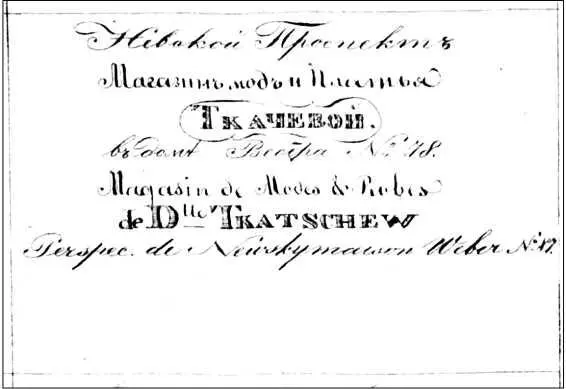 Невской Проспектъ
Магазинъ модъ и Платья
Ткачевой.
въ домѣ Вебера №
Magasin de Modes & Robes
de Dlle Tkatschew
Perspec. de Newsky maison Weber No.